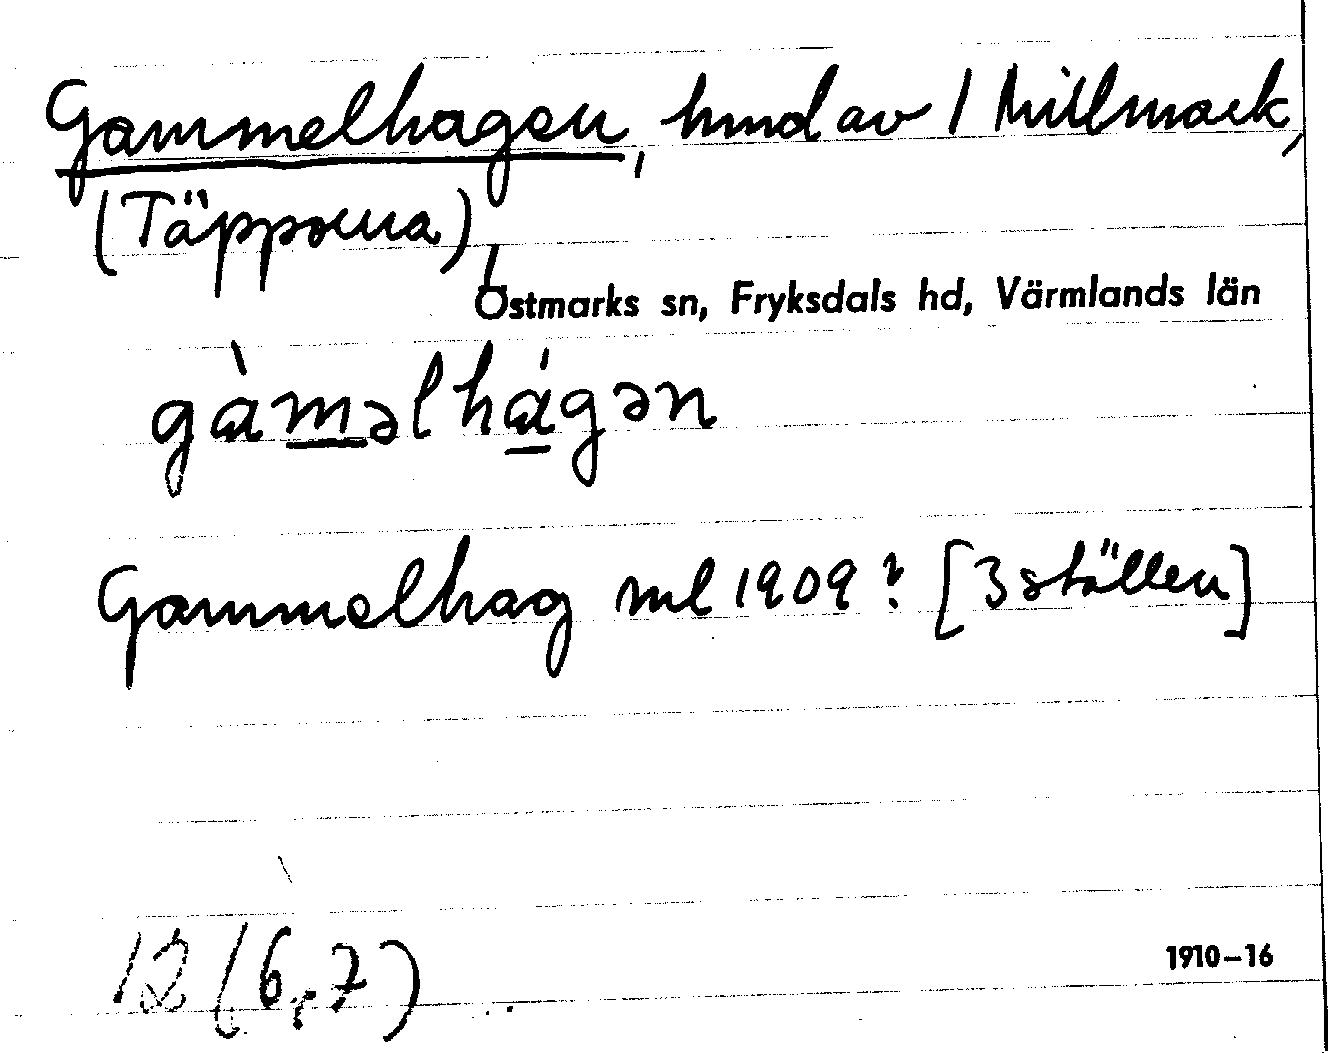 Gammelhagen, hmd av 1 Millmark,
(Täpporna),
Östmarks sn, Fryksdals hd, Värmlands län
gàməlhágən
Gammelhag ml 1909? [3 ställen]
12 (6,7)
1910–16